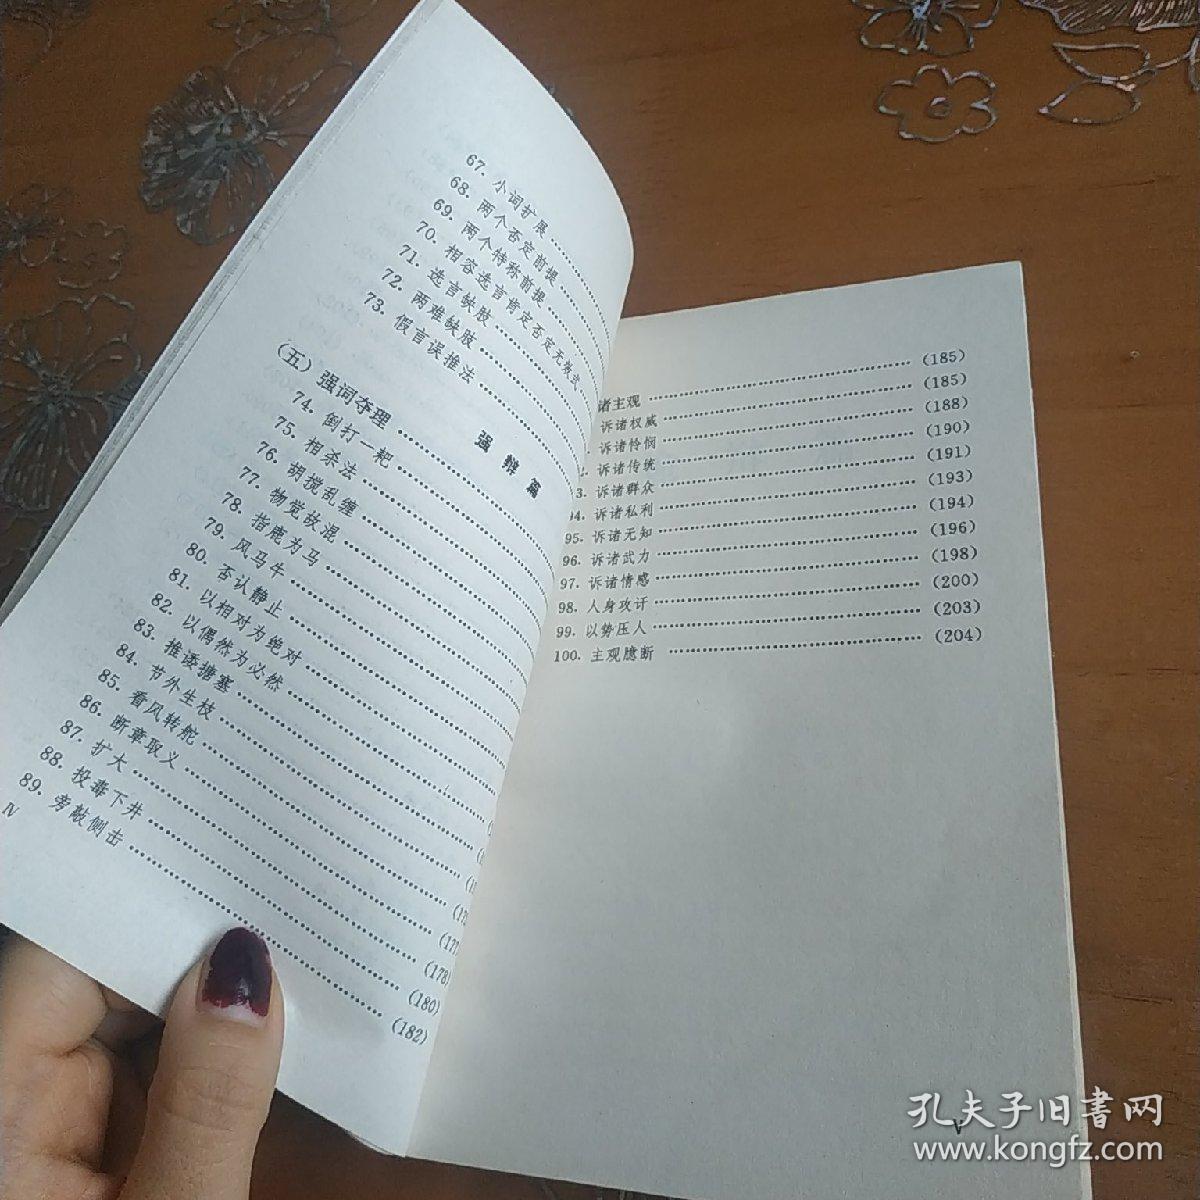 67. 小词扩展
68. 两个否定前提
69. 两个特称前提
70. 相容选言肯定否定无效式
71. 选言缺肢
72. 两难缺肢
73. 假言误推法
强辩篇
(五) 强词夺理
74. 倒打一耙
75. 相杀法
76. 胡搅乱缠
77. 物觉故混
78. 指鹿为马
79. 风马牛
80. 否认静止
81. 以相对为绝对
82. 以偶然为必然
83. 推诿搪塞
84. 节外生枝
85. 看风转舵
86. 断章取义
87. 扩大 (178)
88. 投毒下井 (180)
89. 旁敲侧击 (182)
IV
诸主观 (185)
诉诸权威 (185)
诉诸怜悯 (188)
诉诸传统 (190)
3. 诉诸群众 (191)
94. 诉诸私利 (193)
95. 诉诸无知 (194)
96. 诉诸武力 (196)
97. 诉诸情感 (198)
98. 人身攻讦 (200)
99. 以势压人 (203)
100. 主观臆断 (204)
V
孔夫子旧書网
www.kongfz.com